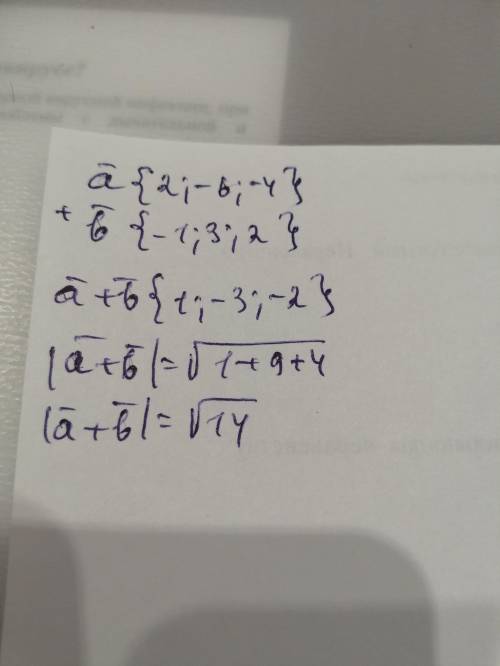 a̅ {2;-6;-4}
+ b̅ {-1;3;2}
a̅+b̅ {1;-3;-2}
|a̅+b̅|=√1+9+4
|a̅+b̅|=√14